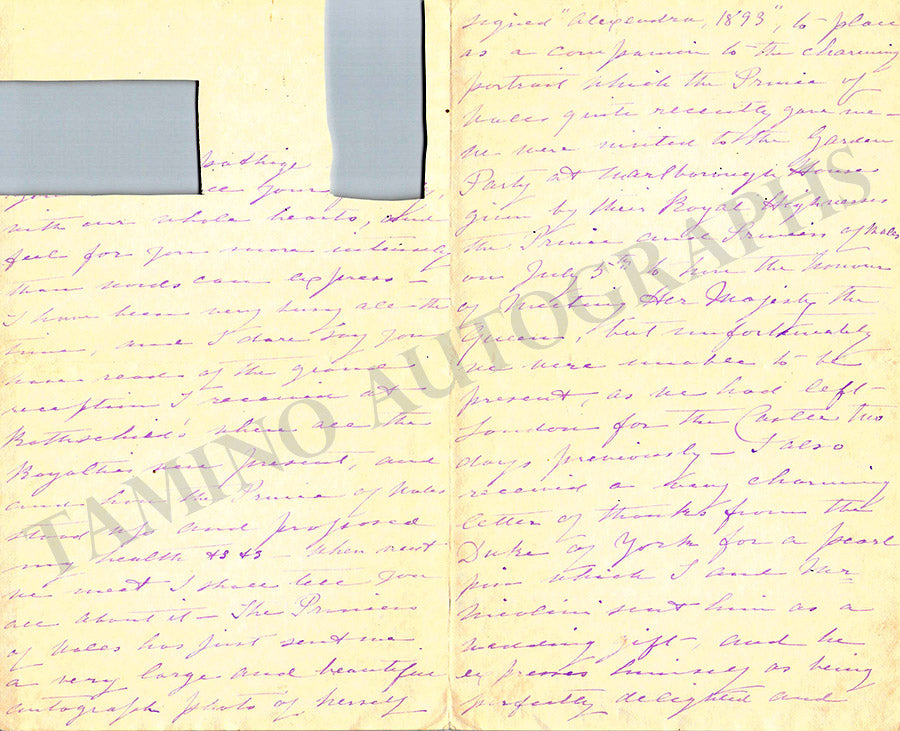 you
with our whole hearts, and
feel for you more intensely
than words can express –
I have been very busy all the
time, and I dare say you
have read of the grand
reception I received at
Rothschild's where all the
Royalties were present, and
and how the Prince of Wales
stood up and proposed
my health &c &c – When next
we meet I shall tell you
all about it – The Princess
of Wales has just sent me
a very large and beautiful
autograph photo of herself
signed "Alexandra, 1893", to place
as a companion to the charming
portrait which the Prince of
Wales quite recently gave me –
We were invited to the Garden
Party at Marlborough House
given by their Royal Highnesses
the Prince and Princess of Wales
on July 5th to have the honour
of meeting Her Majesty the
Queen, but unfortunately
we were unable to be
present, as we had left
London for the Castle two
days previously – I also
received a very charming
letter of thanks from the
Duke of York for a pearl
pin which I and
Nicolini sent him as a
wedding gift – and he
express himself as being
perfectly delighted and
TAMINO AUTOGRAPHS